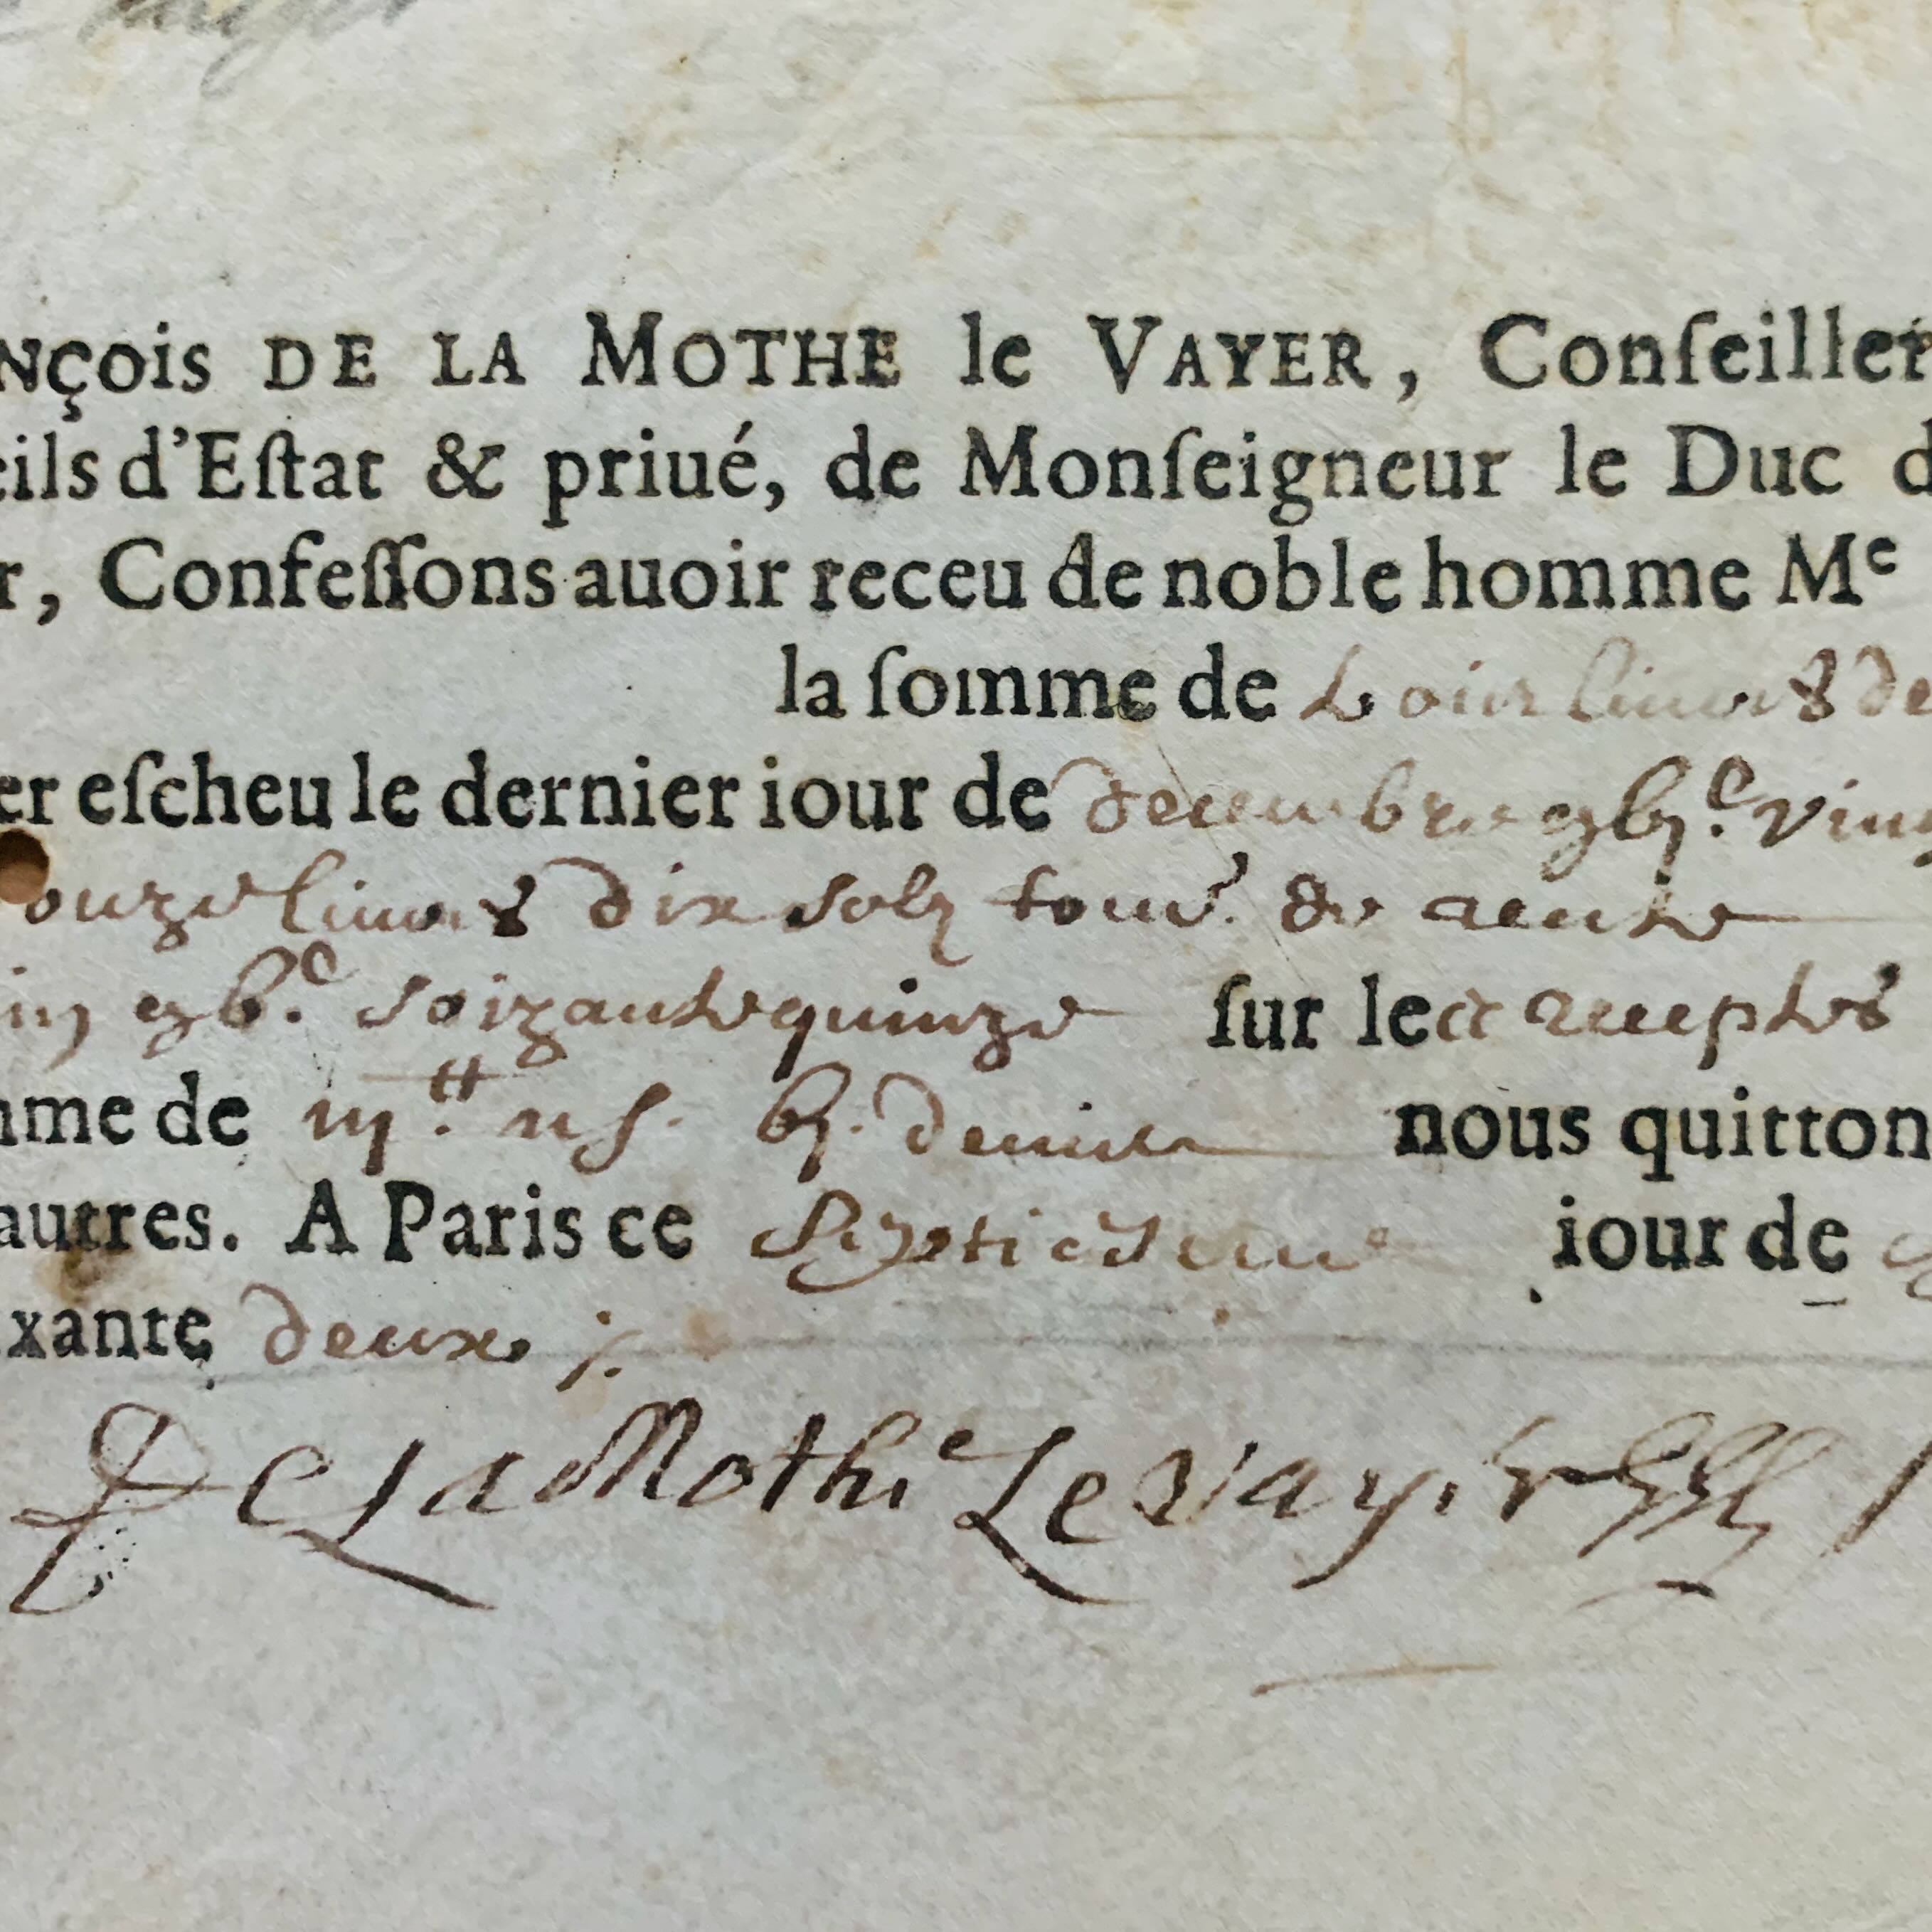 nçois DE LA MOTHE le VAYER, Conſeiller
eils d'Eſtat & priué, de Monſeigneur le Duc d
r, Confeſſons auoir receu de noble homme Me
la ſomme de trois liures de
er eſcheu le dernier iour de decembre ving
onze liures dix solz tour. de rente
soixante quinze ſur le receptes
mme de iij tt ii s. denier nous quitton
autres. A Paris ce septiesme iour de
xante deux
De La Mothe Le Vayer